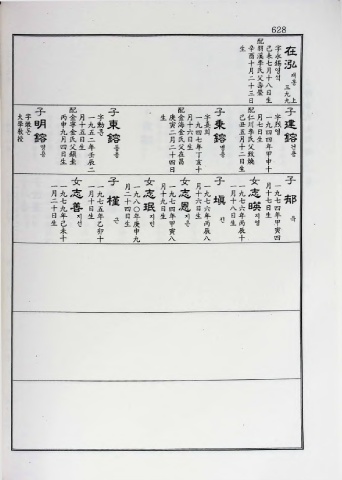 628
在泓 재홍 上三九九
字永錫영석
己未七月十八日生
配羽溪李氏父壽榮
辛酉十月二十三日
生
子建鎔 건용
一九四四年甲申十
月七日生
配仁川李氏父敎
己丑五月二日生
子秉鎔 병용
一九四七年丁亥十
月十六日生
配金海金氏父在
庚寅二月二十四日
生
子東鎔 동용
字勳
一九五二年壬辰二
月十五日生
配金寧金氏父顯
丙申九月四日生
子明鎔 명용
大學敎授
子郁 욱
一九七四年甲寅四
月七日生
女志暎 지영
一九七六年丙辰十
月十八日生
子塡 전
一九七六年丙辰八
月十六日生
女志恩 지은
一九七四年甲寅八
月十九日生
女志珉 지민
一九八〇年庚申九
月二十四日生
子槿 근
一九七五年乙卯十
月十日生
女志善 지선
一九七九年己未十
月二十日生